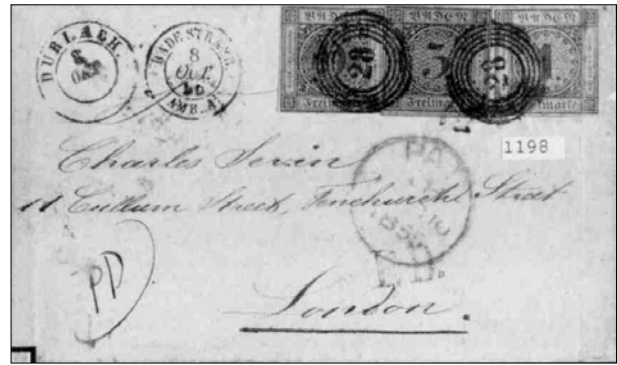 DURLACH.
8
Oct.
BADE STRASB.
8
Oct.
AMB. A
BADEN BADEN BADEN
Freimarke Freimarke Freimarke
28 28
1198
PA
Charles
11 Cullum Street, Fenchurch Street
PD
London.